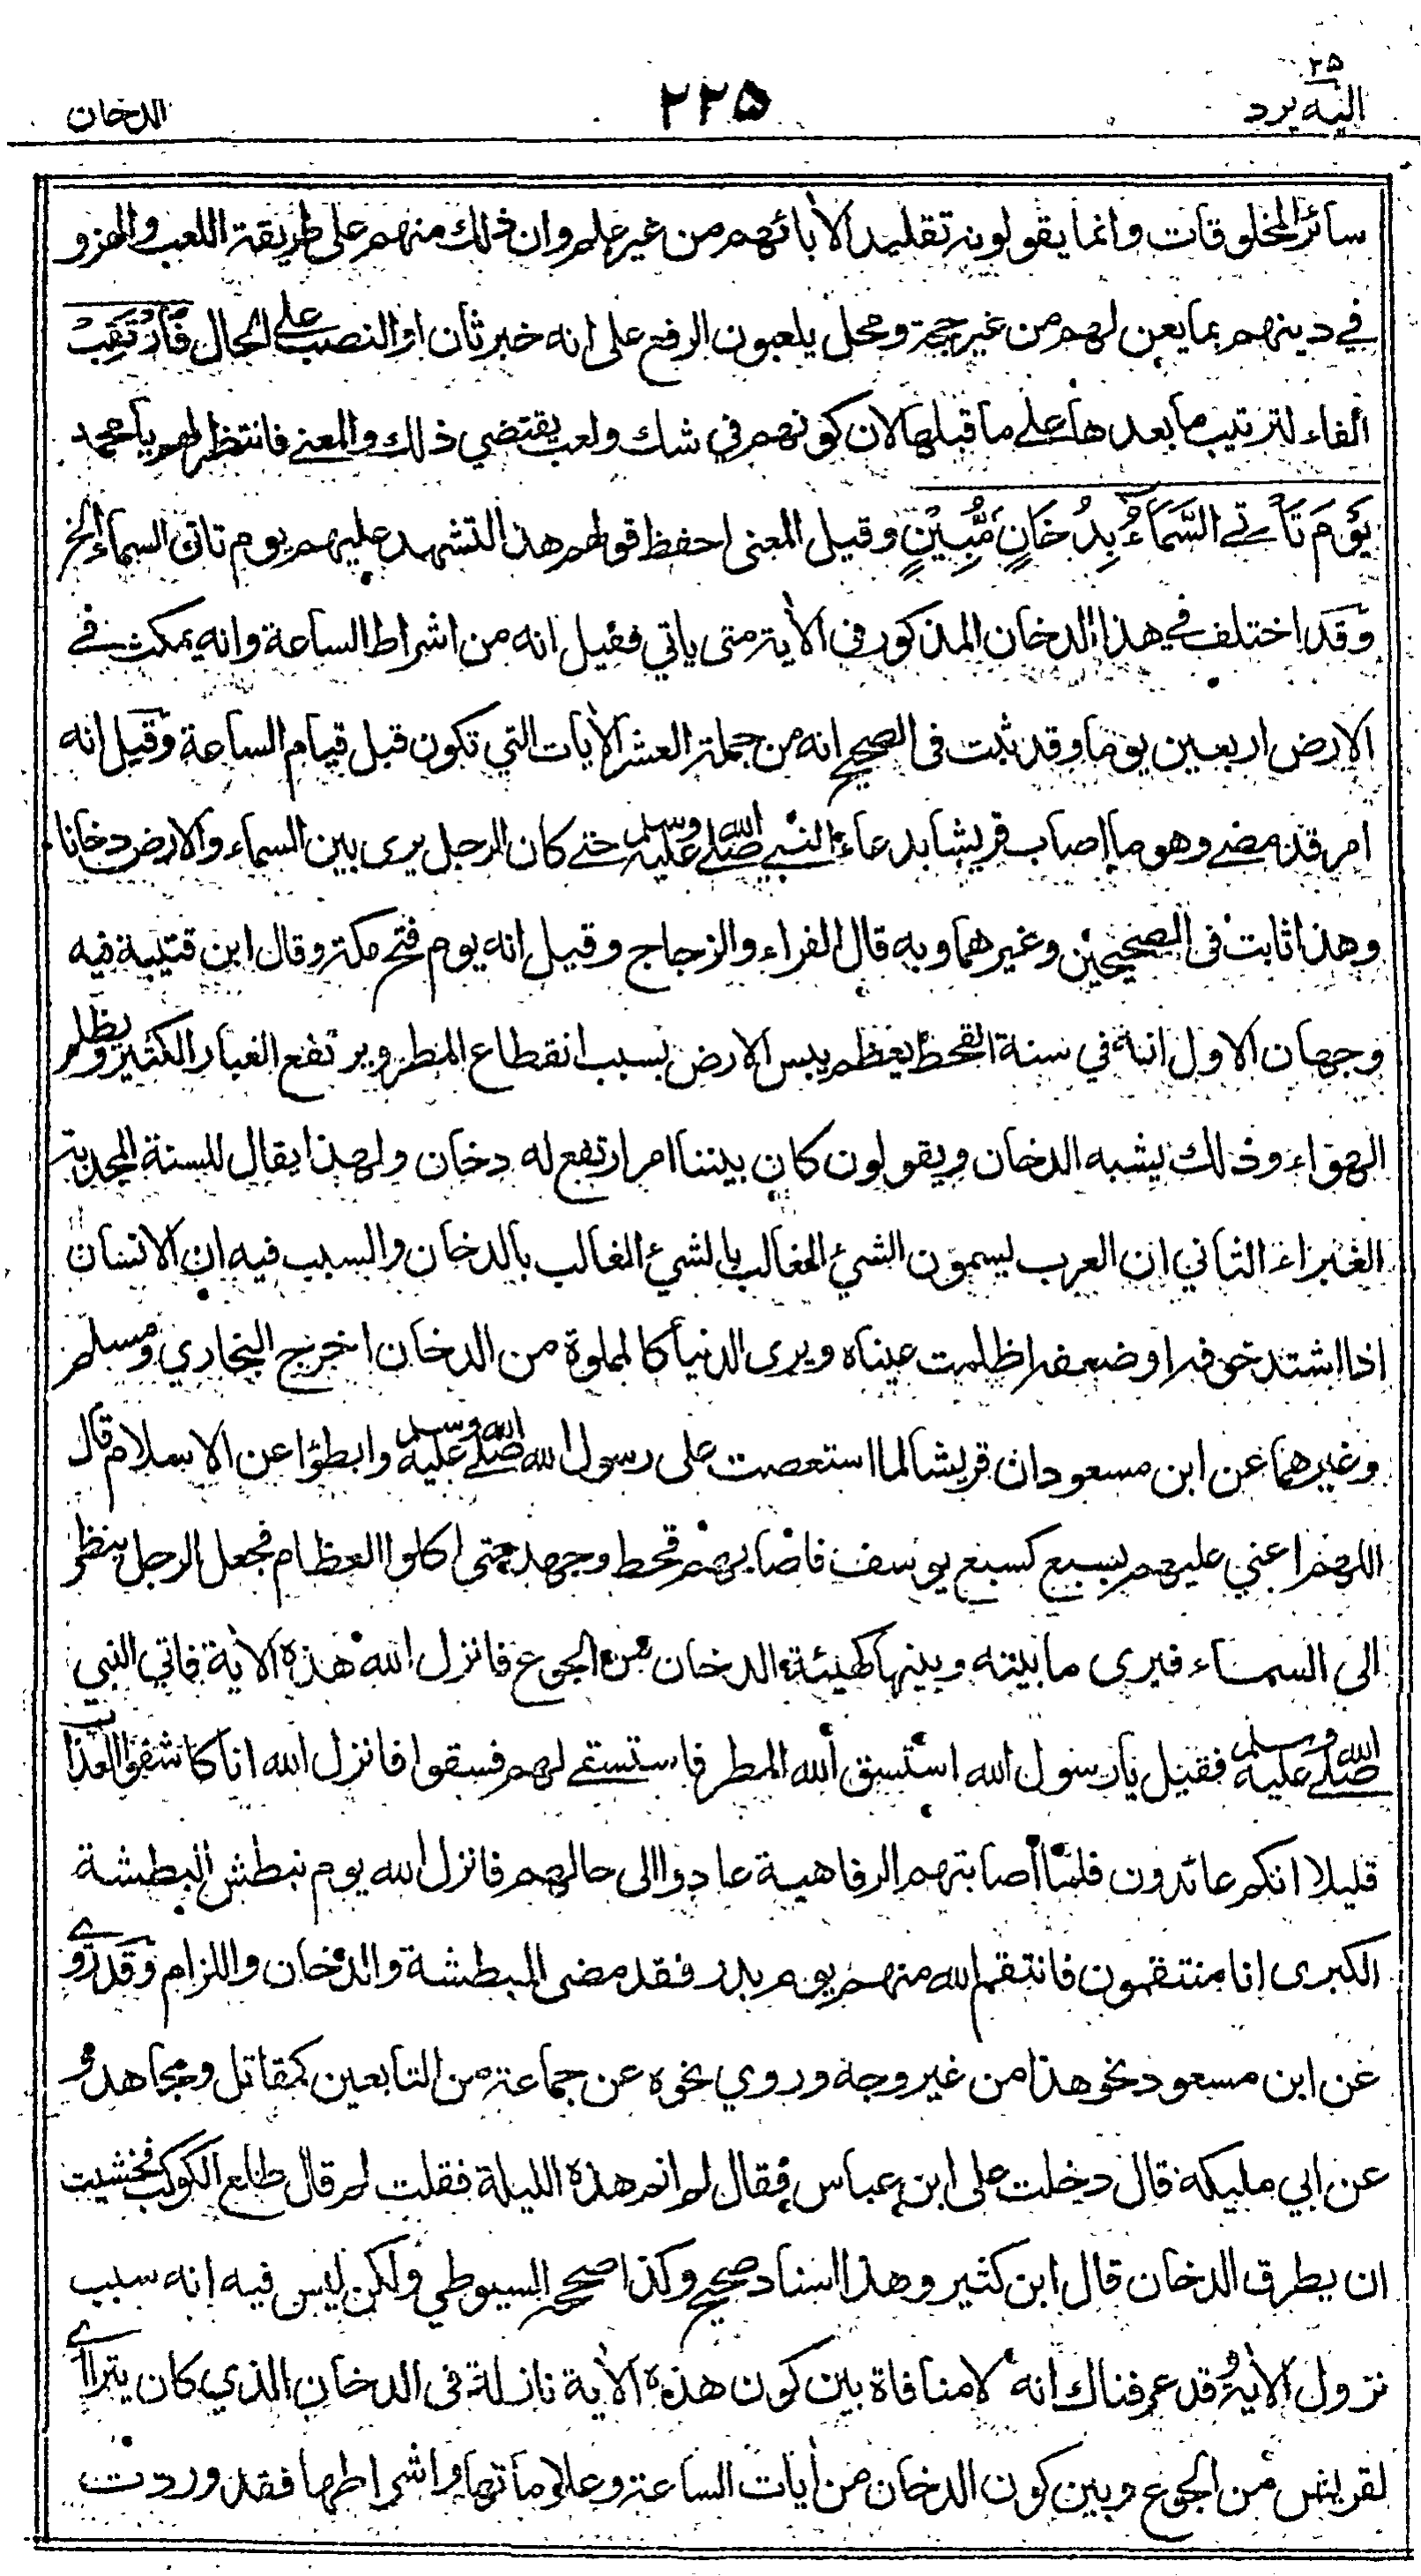 ٢٥
اليه يرد ٢٢٥ الدخان
سائر المخلوقات وانما يقولونه تقليدا لاٰبائهم من غير علم وان ذلك منهم على طريقة اللعب والهزو
في دينهم بما يعن لهم من غير حجة ومحل يلعبون الرفع على انه خبر ثان او النصب على الحال فَارْتَقِبْ
الفاء لترتيب ما بعدها على ما قبلها لان كونهم في شك ولعب يقتضي ذلك والمعنى فانتظر لهم يا محمد
يَوْمَ تَأْتِي السَّمَاءُ بِدُخَانٍ مُّبِيْنٍ وقيل المعنى احفظ قولهم هذا لتشهد عليهم يوم تاتي السماء الخ
وقد اختلف في هذا الدخان المذكور في الاٰية متى ياتي فقيل انه من اشراط الساعة وانه يمكث في
الارض اربعين يوما وقد ثبت في الصحيح انه من جملة العشر الاٰيات التي تكون قبل قيام الساعة وقيل انه
امر قد مضى وهو ما اصاب قريشا بدعاء النبي صلى الله عليه وسلم حتى كان الرجل يرى بين السماء والارض دخانا
وهذا ثابت في الصحيحين وغيرهما وبه قال الفراء والزجاج وقيل انه يوم فتح مكة وقال ابن قتيبة فيه
وجهان الاول انه في سنة القحط يعظم يبس الارض بسبب انقطاع المطر ويرتفع الغبار الكثير ويظلم
الهواء وذلك يشبه الدخان ويقولون كان بيننا امر ارتفع له دخان ولهذا يقال للسنة المجدبة
الغبراء الثاني ان العرب يسمون الشئ الغالب بالشئ الغالب بالدخان والسبب فيه ان الانسان
اذا اشتد خوفه او ضعفه اظلمت عيناه ويرى الدنيا كالمملوة من الدخان اخرج البخاري ومسلم
وغيرهما عن ابن مسعود ان قريشا لما استعصت على رسول الله صلى الله عليه وسلم وابطؤا عن الاسلام قال
اللهم اعني عليهم بسبع كسبع يوسف فاصابهم قحط وجهد حتى اكلوا العظام فجعل الرجل ينظر
الى السماء فيرى ما بينه وبينها كهيئة الدخان من الجوع فانزل الله هذه الاٰية فاتي النبي
صلى الله عليه وسلم فقيل يا رسول الله استسق الله المطر فاستسقى لهم فسقوا فانزل الله انا كاشفوا العذاب
قليلا انكم عائدون فلما اصابتهم الرفاهية عادوا الى حالهم فانزل الله يوم نبطش البطشة
الكبرى انا منتقمون فانتقم الله منهم يوم بدر فقد مضى البطشة والدخان واللزام وقد روي
عن ابن مسعود نحو هذا من غير وجه وروي نحوه عن جماعة من التابعين كمقاتل ومجاهد و
عن ابي مليكه قال دخلت على ابن عباس فقال لم انم هذه الليلة فقلت لم قال طلع الكوكب فخشيت
ان يطرق الدخان قال ابن كثير وهذا اسناد صحيح وكذا صححه السيوطي ولكن ليس فيه انه سبب
نزول الاٰية وقد عرفناك انه لا منافاة بين كون هذه الاٰية نازلة في الدخان الذي كان يتراأى
لقريش من الجوع وبين كون الدخان من اٰيات الساعة وعلاماتها واشراطها فقد وردت